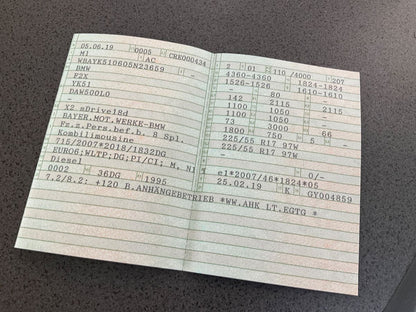 05.06.19 0005 CRK000434
M1 AC
WBAYK510605N23659 -
BMW
F2X
YK51
DAW500L0
X2 sDrive18d
BAYER.MOT.WERKE-BMW
Fz.z.Pers.bef.b. 8 Spl.
Kombilimousine
715/2007*2018/1832DG
EURO6;WLTP;DG;PI/CI; M, N1 I
Diesel
0002 36DG 1995
7.2/8.2: +120 B.ANHÄNGEBETRIEB *WW.AHK LT.EGTG *
2 01 110 /4000 207
4360-4360 1824-1824
1526-1526 1610-1610
- 80 -
142 - 2115
1100 1050 2115
1100 1050 -
73 3000 66
1800 750 5 -
225/55 R17 97W
225/55 R17 97W
-
e1*2007/46*1824*05 0/-
25.02.19 K GY004859